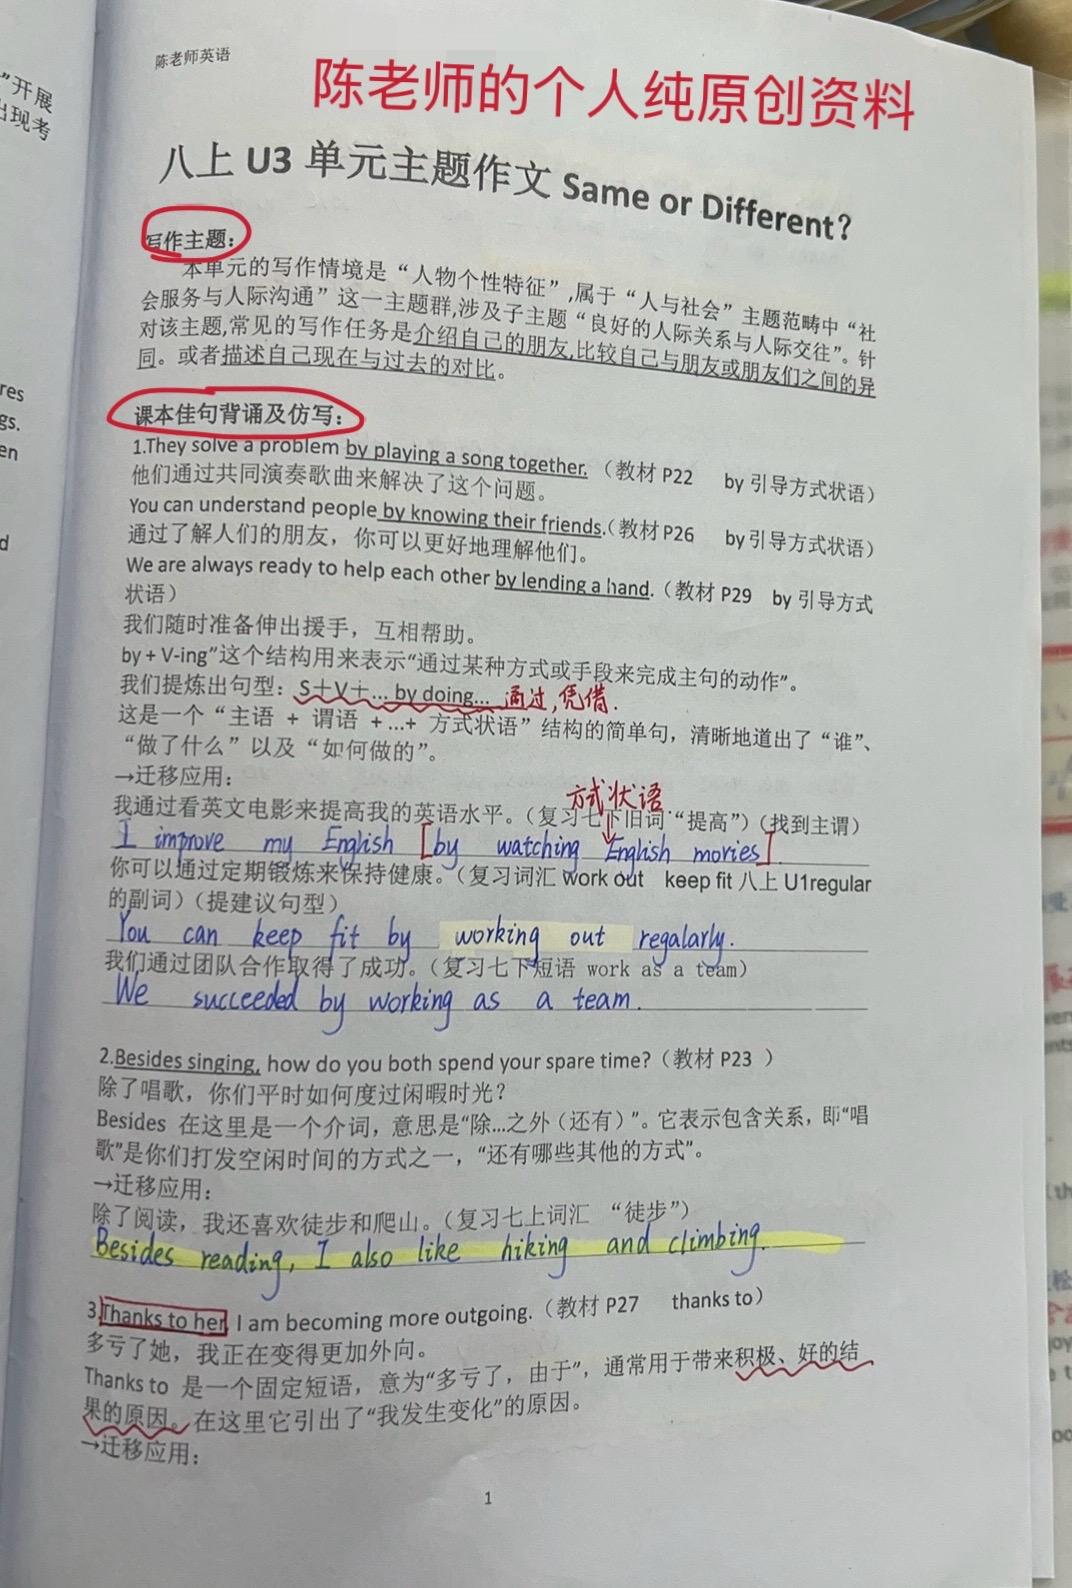 陈老师英语
陈老师的个人纯原创资料
八上 U3 单元主题作文 Same or Different?
写作主题：
本单元的写作情境是“人物个性特征”,属于“人与社会”主题范畴中“社
会服务与人际沟通”这一主题群,涉及子主题“良好的人际关系与人际交往”。针
对该主题,常见的写作任务是介绍自己的朋友,比较自己与朋友或朋友们之间的异
同。或者描述自己现在与过去的对比。
课本佳句背诵及仿写：
1.They solve a problem by playing a song together.（教材 P22 by 引导方式状语）
他们通过共同演奏歌曲来解决了这个问题。
You can understand people by knowing their friends.（教材 P26 by 引导方式状语）
通过了解人们的朋友，你可以更好地理解他们。
We are always ready to help each other by lending a hand.（教材 P29 by 引导方式
状语）
我们随时准备伸出援手，互相帮助。
by + V-ing”这个结构用来表示“通过某种方式或手段来完成主句的动作”。
我们提炼出句型：S＋V＋... by doing... 通过,凭借.
这是一个“主语 + 谓语 +...+ 方式状语”结构的简单句，清晰地道出了“谁”、
“做了什么”以及“如何做的”。
→迁移应用：
方式状语
我通过看英文电影来提高我的英语水平。（复习七下旧词“提高”）（找到主谓）
I improve my English [by watching English movies].
你可以通过定期锻炼来保持健康。（复习词汇 work out keep fit 八上 U1regular
的副词）（提建议句型）
You can keep fit by working out regalarly.
我们通过团队合作取得了成功。（复习七下短语 work as a team）
We succeeded by working as a team.
2.Besides singing, how do you both spend your spare time?（教材 P23 ）
除了唱歌，你们平时如何度过闲暇时光？
Besides 在这里是一个介词，意思是“除...之外（还有）”。它表示包含关系，即“唱
歌”是你们打发空闲时间的方式之一，“还有哪些其他的方式”。
→迁移应用：
除了阅读，我还喜欢徒步和爬山。（复习七上词汇 “徒步”）
Besides reading, I also like hiking and climbing.
3.Thanks to her, I am becoming more outgoing.（教材 P27 thanks to）
多亏了她，我正在变得更加外向。
Thanks to 是一个固定短语，意为“多亏了，由于”，通常用于带来积极、好的结
果的原因。在这里它引出了“我发生变化”的原因。
→迁移应用：
1
”开展
出现考
res
gs.
en
d